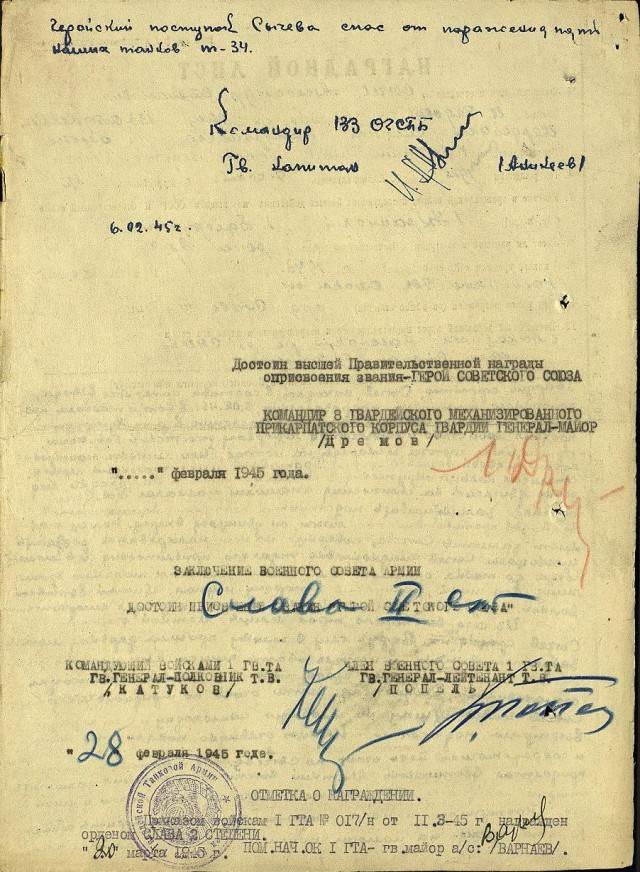 Геройский поступок Сычева спас от поражения пять
наших танков т-34.
Командир 133 ОГСТБ
Гв. капитан
/Аникеев/
6.02.45г.
Достоин высшей Правительственной награды
оприсвоения звания-ГЕРОЙ СОВЕТСКОГО СОЮЗА
КОМАНДИР 8 ГВАРДЕЙСКОГО МЕХАНИЗИРОВАННОГО
ПРИКАРПАТСКОГО КОРПУСА ГВАРДИИ ГЕНЕРАЛ-МАЙОР
/Дремов/
"....." февраля 1945 года.
ЗАКЛЮЧЕНИЕ ВОЕННОГО СОВЕТА АРМИИ
Слава II ст
ДОСТОИН ПРИСВОЕНИЯ ЗВАНИЯ "ГЕРОЙ СОВЕТСКОГО СОЮЗА"
КОМАНДУЮЩИЙ ВОЙСКАМИ 1 ГВ.ТА
ГВ.ГЕНЕРАЛ-ПОЛКОВНИК Т.В.
/КАТУКОВ/
ЧЛЕН ВОЕННОГО СОВЕТА 1 ГВ.ТА
ГВ.ГЕНЕРАЛ-ЛЕЙТЕНАНТ Т.В.
/ПОПЕЛЬ/
"28 февраля 1945 года.
ОТМЕТКА О НАГРАЖДЕНИИ.
Приказом войскам I ГТА № 017/н от II.3-45 г. награжден
орденом СЛАВА 2 СТЕПЕНИ.
"20" марта 1945 г.
ПОМ.НАЧ.ОК I ГТА- гв.майор а/с: /ВАРНАЕВ/